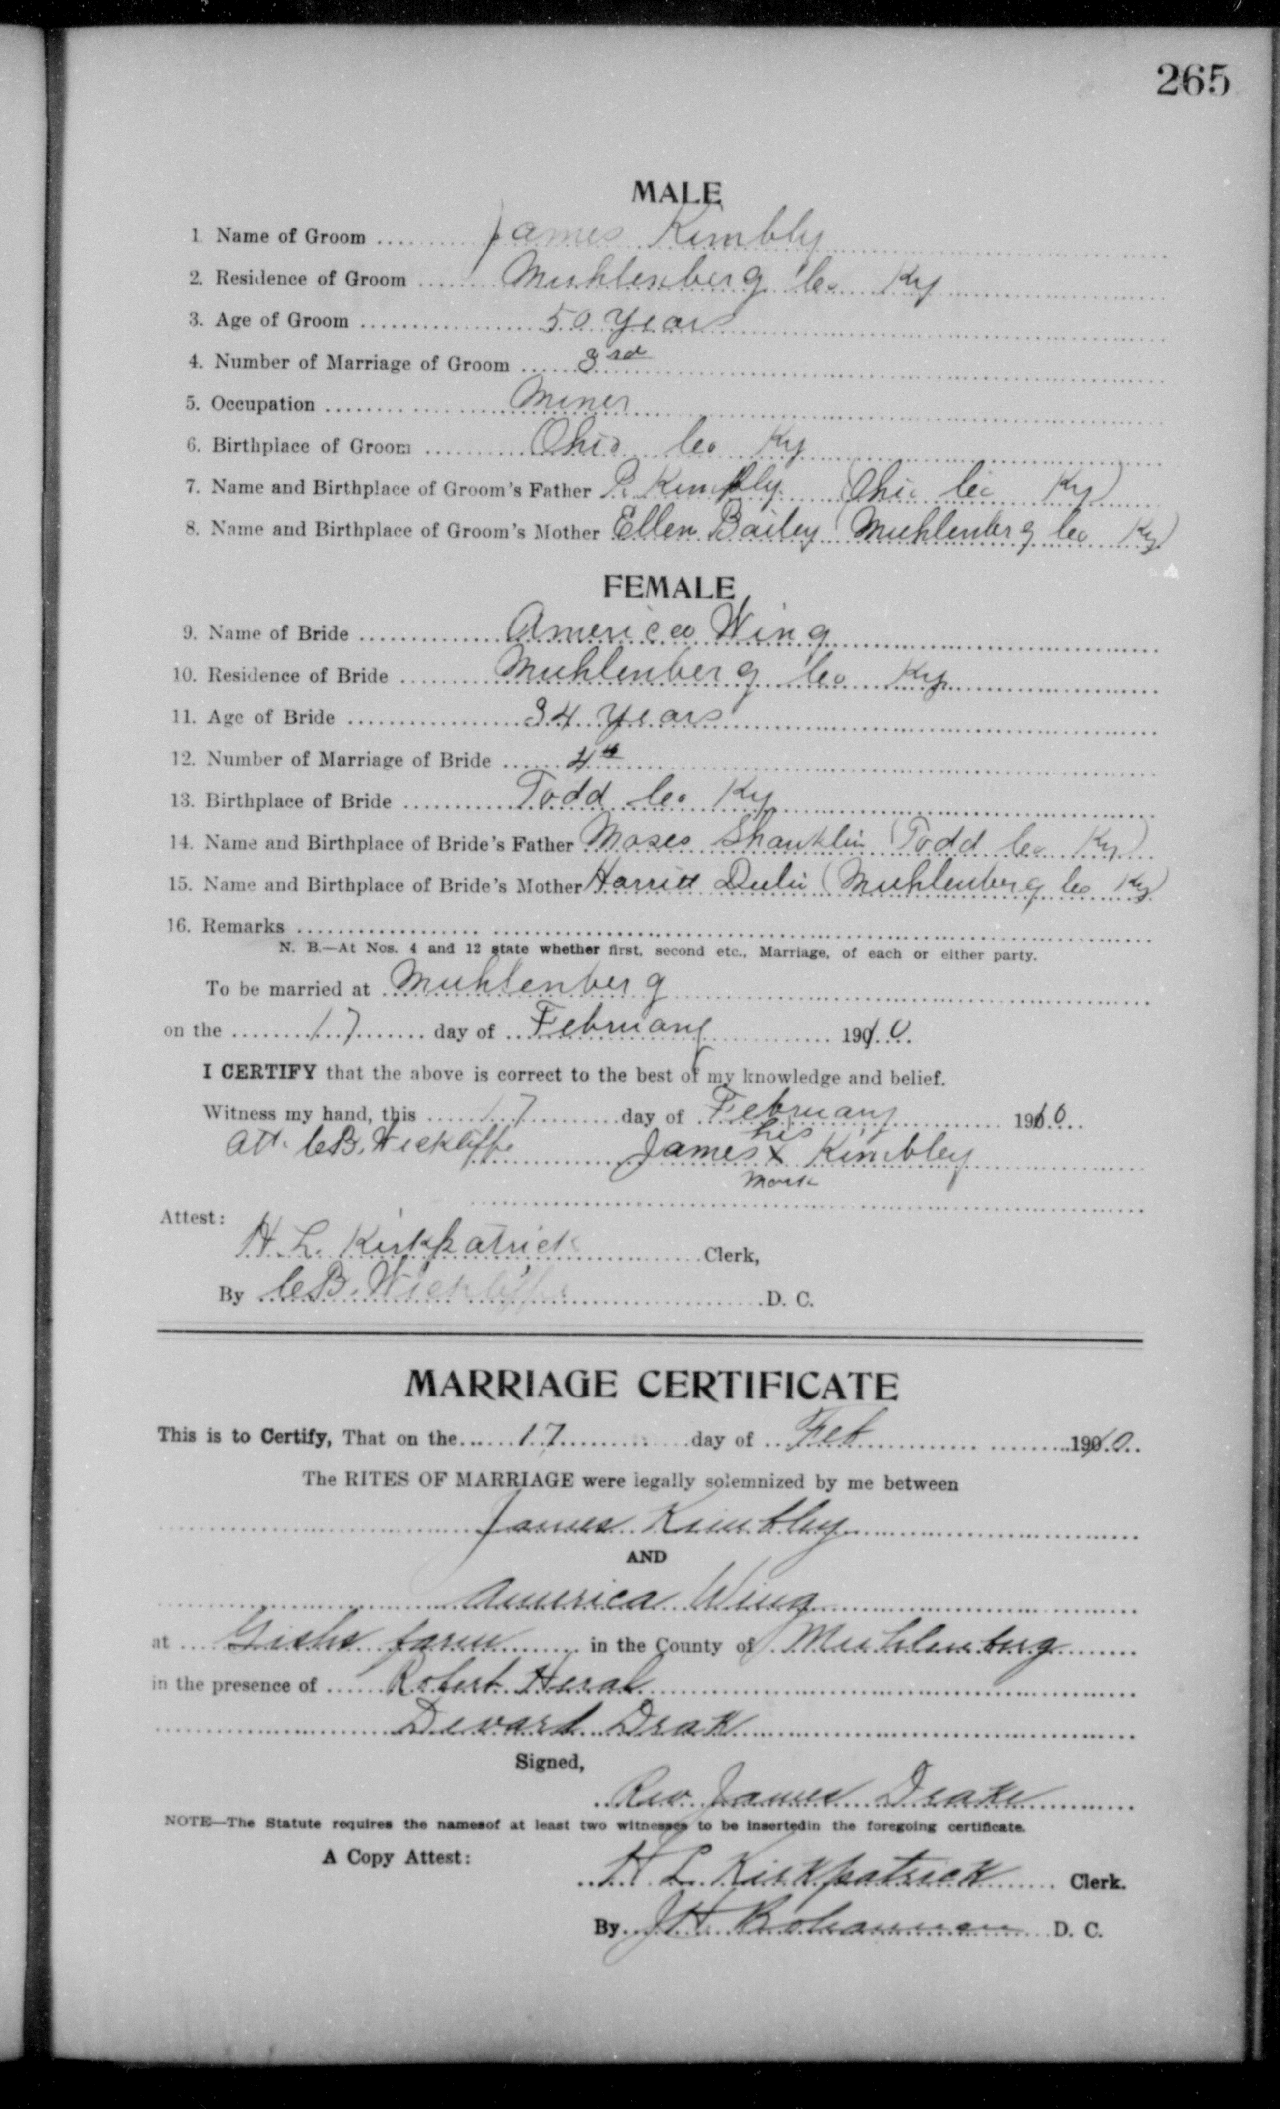 265
MALE
1 Name of Groom James Kimbly
2. Residence of Groom Muhlenberg Co Ky
3. Age of Groom 50 Years
4. Number of Marriage of Groom 3rd
5. Occupation Miner
6. Birthplace of Groom Ohio Co Ky
7. Name and Birthplace of Groom's Father P. Kimbly (Ohio Co Ky)
8. Name and Birthplace of Groom's Mother Ellen Bailey (Muhlenberg Co Ky)
FEMALE
9. Name of Bride America Wing
10. Residence of Bride Muhlenberg Co Ky
11. Age of Bride 34 Years
12. Number of Marriage of Bride 4th
13. Birthplace of Bride Todd Co Ky
14. Name and Birthplace of Bride's Father Moses Shanklin (Todd Co Ky)
15. Name and Birthplace of Bride's Mother (Muhlenberg Co Ky)
16. Remarks
N. B.—At Nos. 4 and 12 state whether first, second etc., Marriage, of each or either party.
To be married at Muhlenberg
on the 17 day of February 1910
I CERTIFY that the above is correct to the best of my knowledge and belief.
Witness my hand, this 17 day of February 1910
Att. C.B. Wickliffe James his x mark Kimbley
Attest:
H. L. Kirkpatrick Clerk,
By C.B. Wickliffe D. C.
MARRIAGE CERTIFICATE
This is to Certify, That on the 17 day of Feb 1910
The RITES OF MARRIAGE were legally solemnized by me between
James Kimbley
AND
America Wing
at farm in the County of Muhlenberg
in the presence of Robert
Drak
Signed,
Rev James Drake
NOTE—The Statute requires the namesof at least two witnesses to be insertedin the foregoing certificate.
A Copy Attest:
H L Kirkpatrick Clerk.
By J H Bohannon D. C.